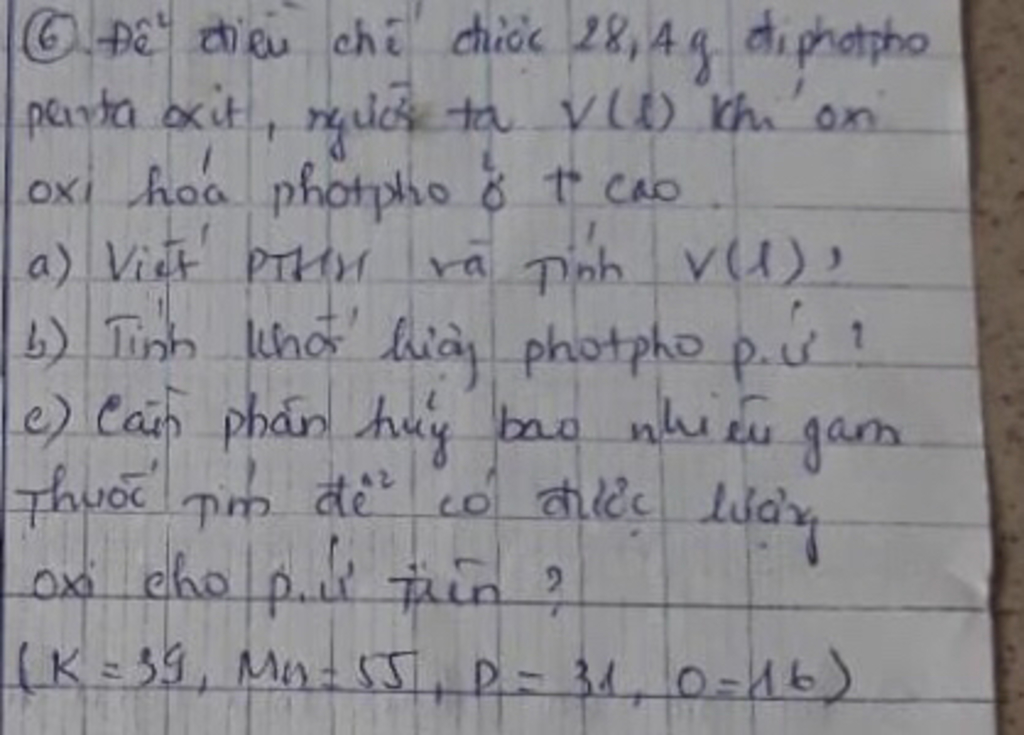 ⑥. Để điều chế được 28,4g điphotpho
penta oxit, người ta V(l) khí oxi
oxi hoá photpho ở t° cao.
a) Viết PTHH và Tính V(l)?
b) Tính khối lượng photpho p.ứ?
c) Cần phân hủy bao nhiêu gam
Thuốc Tím để có được lượng
oxi cho p.ứ trên?
(K = 39, Mn = 55, P = 31, O = 16)